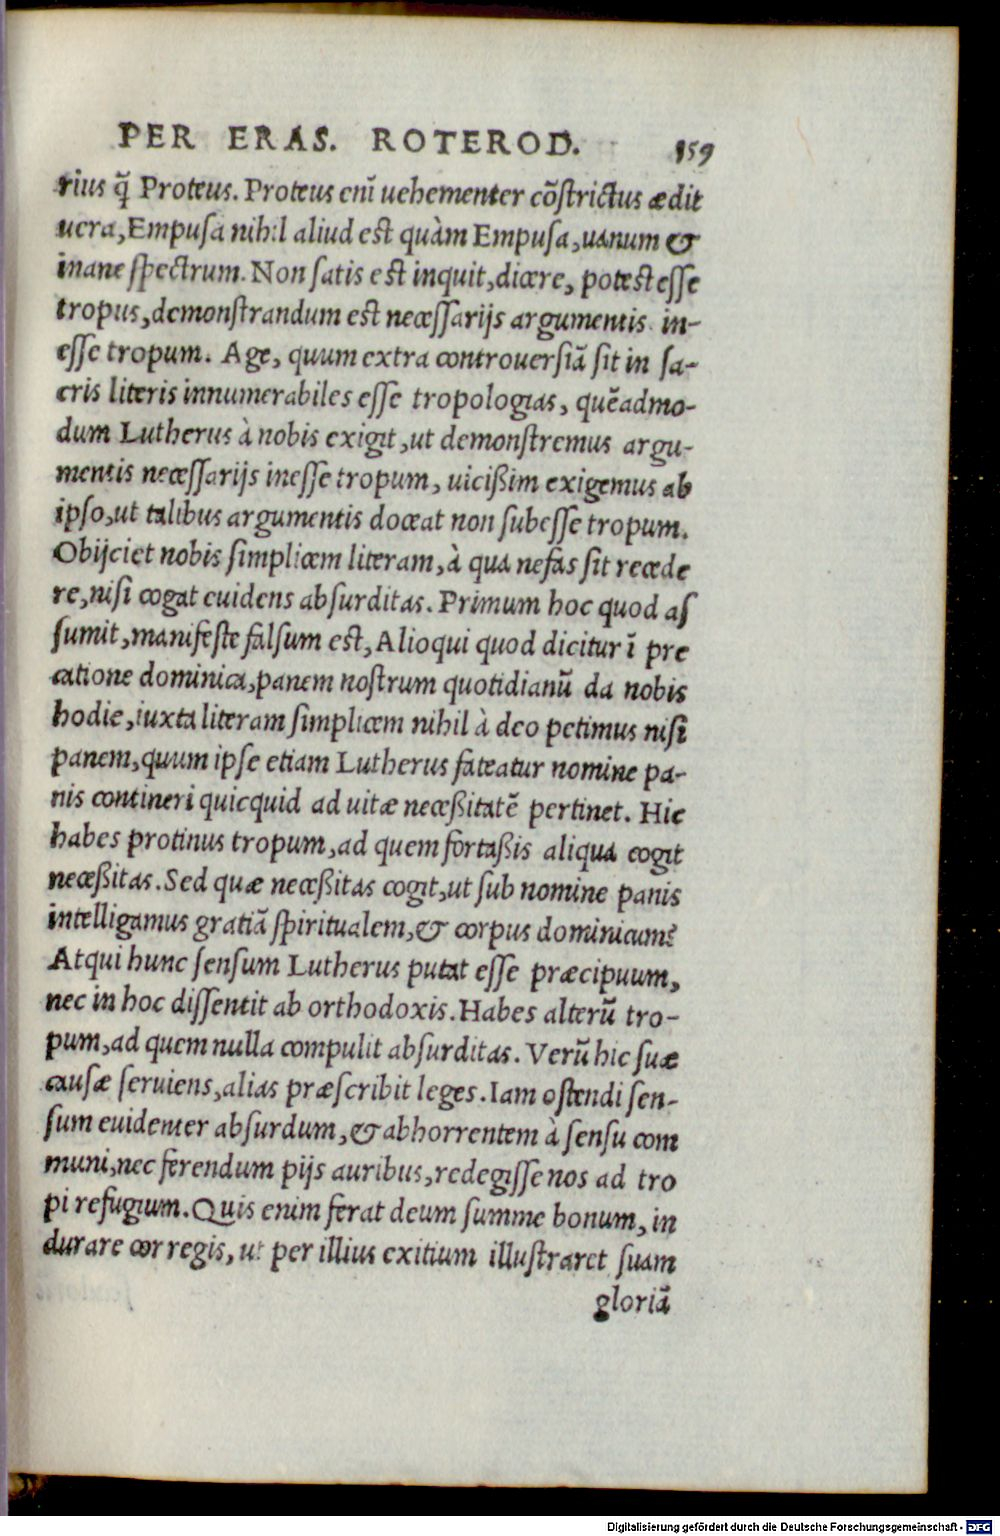 PER ERAS. ROTEROD. 159
rius q̃ Proteus. Proteus enĩ uehementer cõstrictus ædit
uera, Empusa nihil aliud est quàm Empusa, uanum &
inane spectrum. Non satis est inquit, dicere, potest esse
tropus, demonstrandum est necessarijs argumentis in-
esse tropum. Age, quum extra controuersiã sit in sa-
cris literis innumerabiles esse tropologias, quẽadmo-
dum Lutherus à nobis exigit, ut demonstremus argu-
mentis necessarijs inesse tropum, uicißim exigemus ab
ipso, ut talibus argumentis doceat non subesse tropum.
Obijciet nobis simplicem literam, à qua nefas sit recede
re, nisi cogat euidens absurditas. Primum hoc quod as
sumit, manifeste falsum est, Alioqui quod dicitur ĩ pre
catione dominica, panem nostrum quotidianũ da nobis
hodie, iuxta literam simplicem nihil à deo petimus nisi
panem, quum ipse etiam Lutherus fateatur nomine pa-
nis contineri quicquid ad uitæ neceßitatẽ pertinet. Hic
habes protinus tropum, ad quem fortaßis aliqua cogit
neceßitas. Sed quæ neceßitas cogit, ut sub nomine panis
intelligamus gratiã spiritualem, & corpus dominicum?
Atqui hunc sensum Lutherus putat esse præcipuum,
nec in hoc dissentit ab orthodoxis. Habes alterũ tro-
pum, ad quem nulla compulit absurditas. Verũ hic suæ
causæ seruiens, alias præscribit leges. Iam ostendi sen-
sum euidenter absurdum, & abhorrentem à sensu com
muni, nec ferendum pijs auribus, redegisse nos ad tro
pi refugium. Quis enim ferat deum summe bonum, in
durare cor regis, ut per illius exitium illustraret suam
gloriã
Digitalisierung gefördert durch die Deutsche Forschungsgemeinschaft - DFG